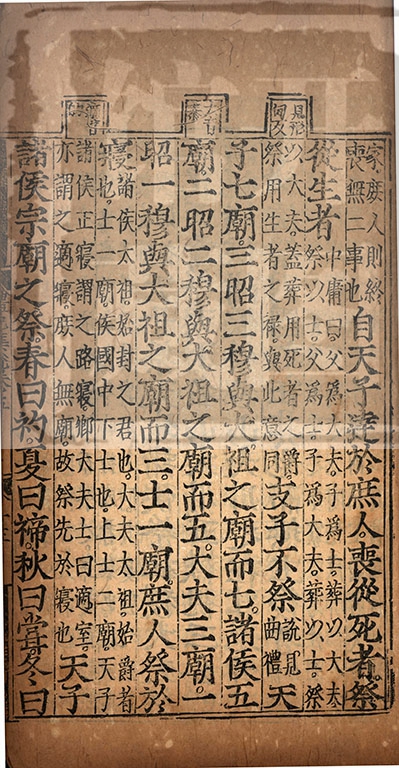 見形
甸反
大音
泰
家庶人則終
喪無二事也
自天子達於庶人。喪從死者。祭
從生者
中庸曰。父爲大夫。子爲士。葬以大夫
祭以士。父爲士。子爲大夫。葬以士。祭
以大夫。蓋葬用死者之爵。
祭用生者之祿。與此意同
支子不祭
說見
曲禮
天
子七廟。三昭三穆。與大祖之廟而七。諸侯五
廟。二昭二穆。與大祖之廟而五。大夫三廟。一
昭一穆。與大祖之廟而三。士一廟。庶人祭於
寢
諸侯太祖。始封之君也。大夫太祖。始爵者
也。士一廟。侯國中下士也。上士二廟。天子
諸侯正寢。謂之路寢。卿大夫士曰適室。
亦謂之適寢。庶人無廟。故祭先於寢也
天子
諸侯宗廟之祭。春曰礿。夏曰禘。秋曰嘗。冬曰